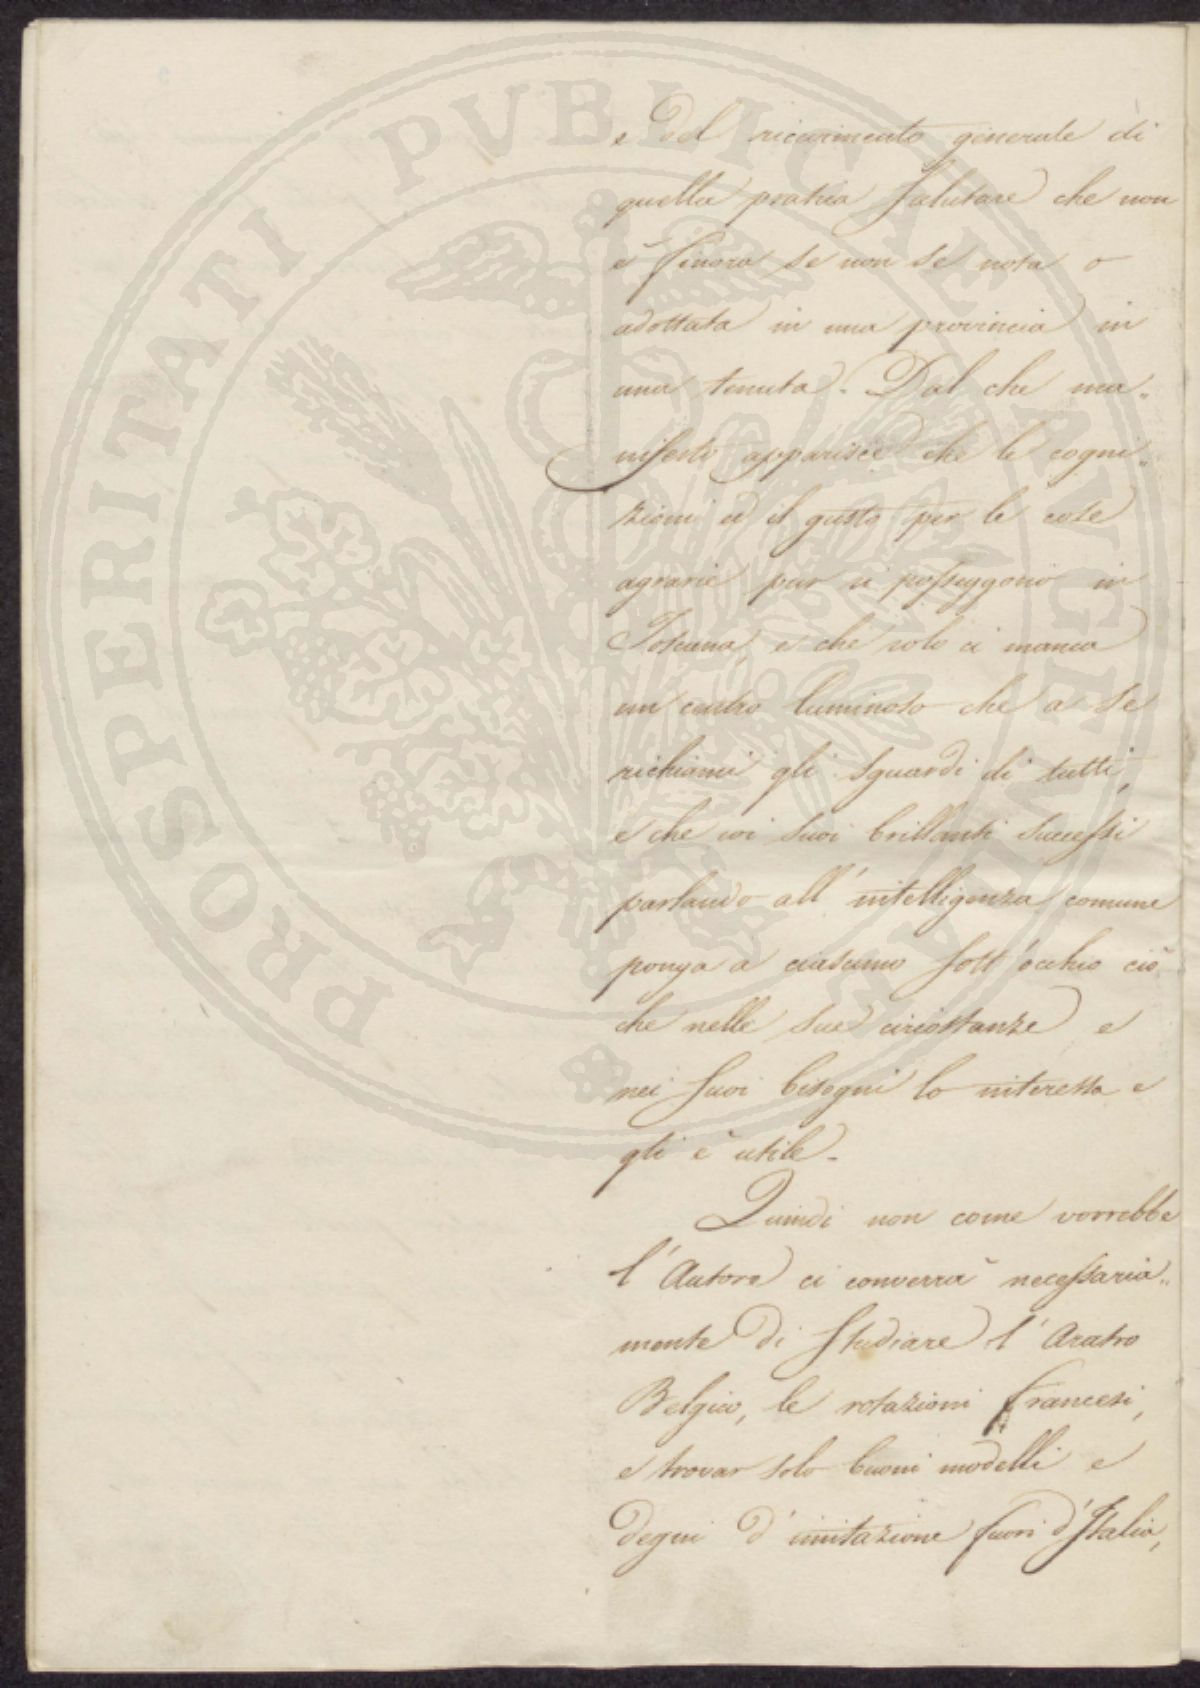 e del ricevimento generale di
quella pratica salutare che non
è finora se non se nota o
adottata in una provincia in
una tenuta. Dal che ma„
nifesto apparisce che le cogni„
zioni ed il gusto per le cose
agrarie pur si posseggono in
Toscana, e che solo ci manca
un centro luminoso che a se
richiami gli sguardi di tutti,
e che coi suoi brillanti successi
parlando all'intelligenza comune
ponga a ciascuno sott'occhio ciò
che nelle sue circostanze e
nei suoi bisogni lo interessa e
gli è utile.
Quindi non come vorrebbe
l'Autore ci converrà necessaria„
mente di studiare l'Aratro
Belgico, le rotazioni francesi,
e trovar solo buoni modelli e
degni d'imitazione fuori d'Italia,
PROSPERITATI PVBLICAE AVGENDAE